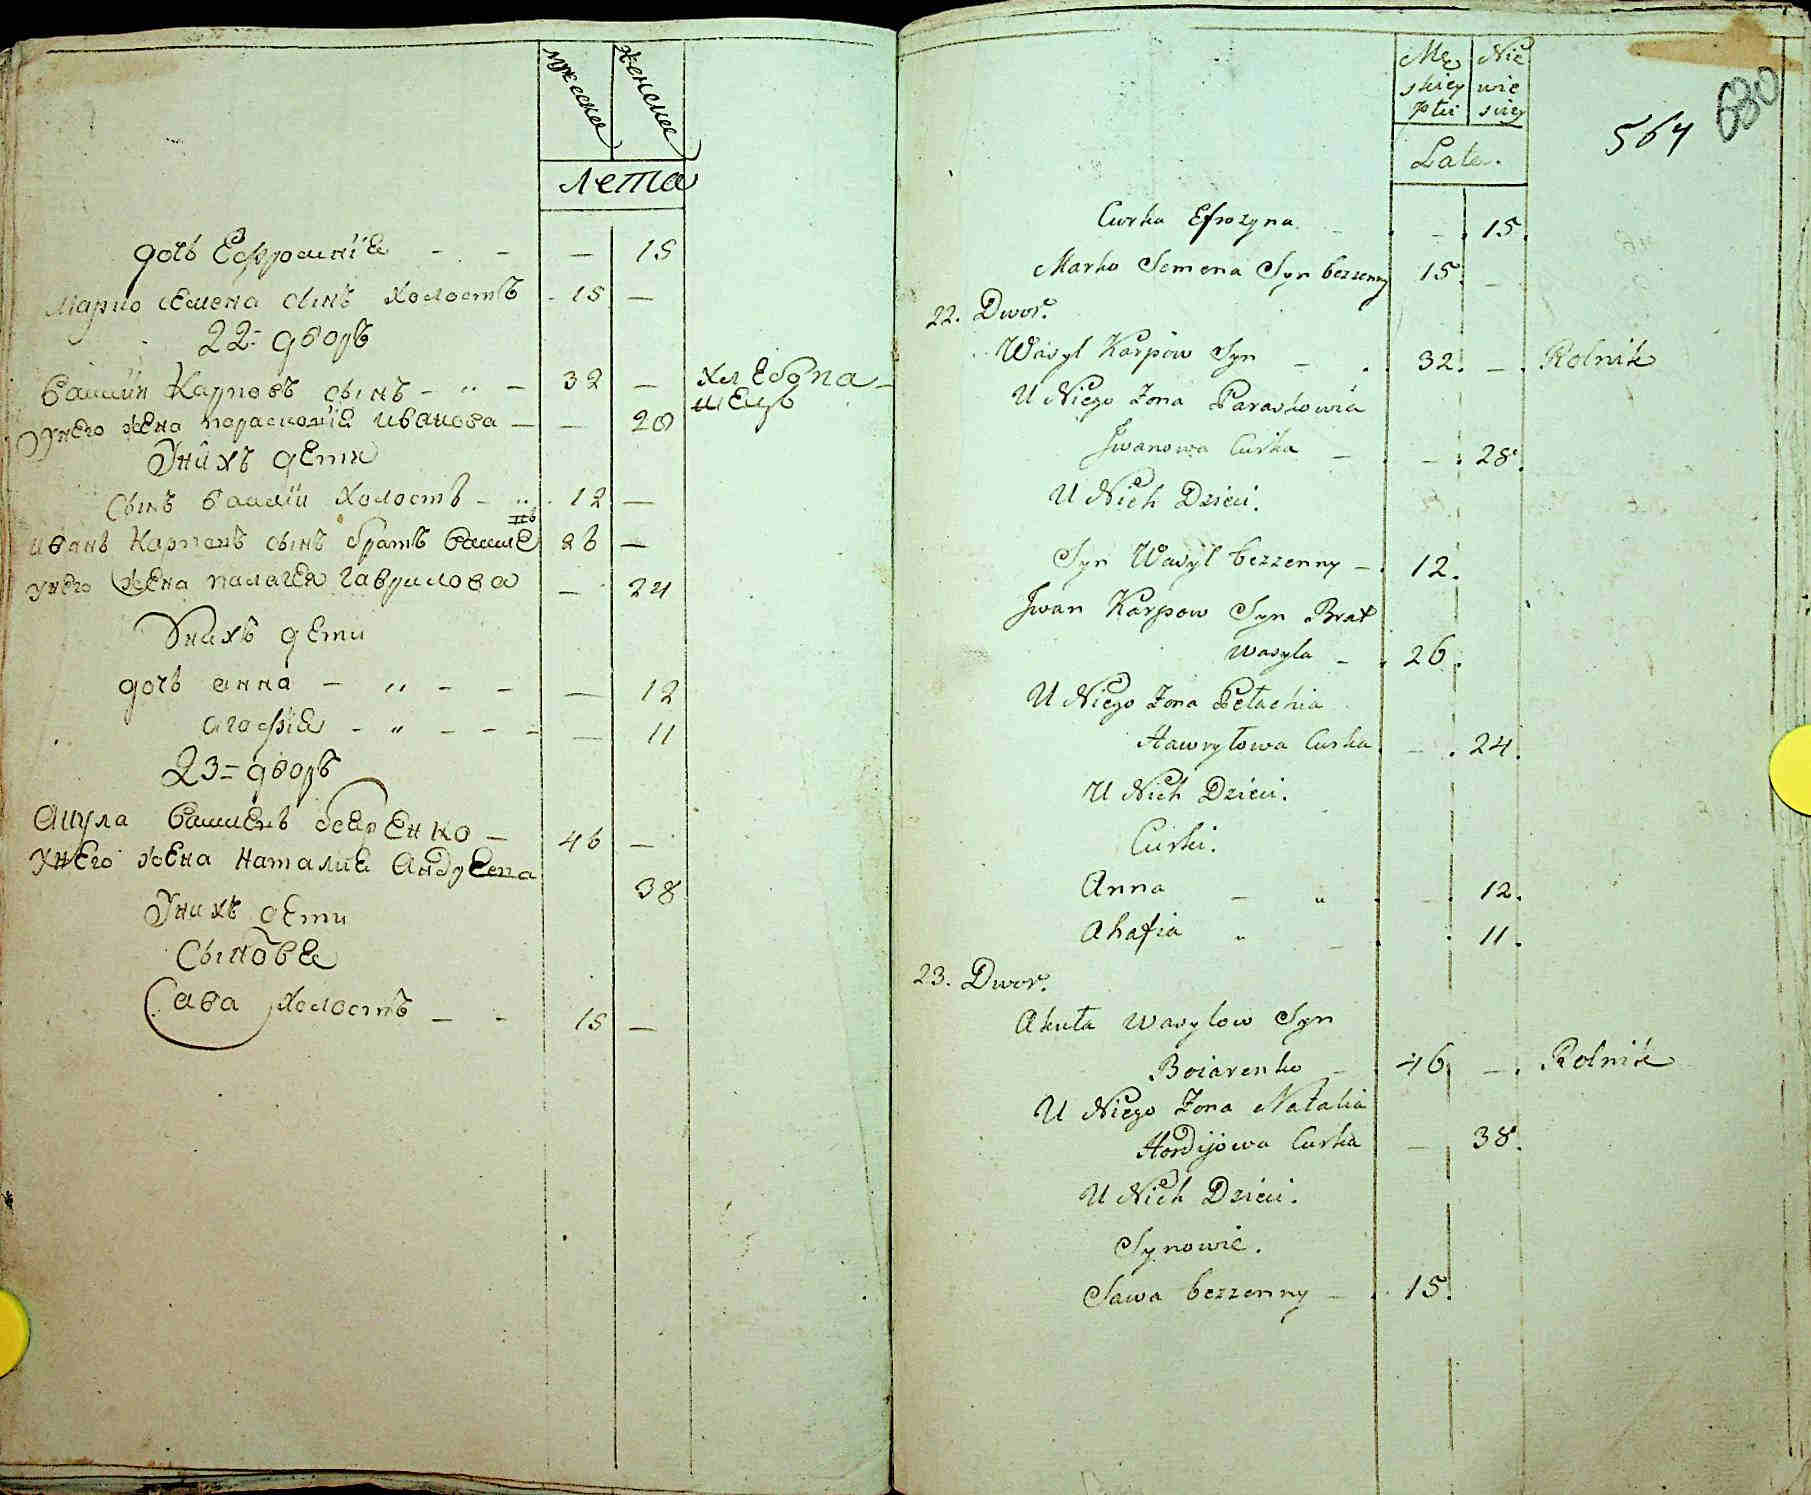 мужеска женска
лета
дочь Ефросиніе - - — 15
Марко семена сынъ холостъ - 15 —
22= дворъ
Василий Карповъ сынъ - „ - 32 — хлебопа-
шецъ
Унего жена параскевіе Иванова — — 28
Унихъ дети
Сынъ василий холостъ - „ - 12 —
иванъ Карповъ сынъ братъ василе 26 —
унего жена палагея гаврилова — 24
Унихъ дети
дочь анна - „ - - — 12
агафіе - „ - - - — 11
23= дворъ
Акула василевъ боеренко — 46 —
Унего жена Наталие Андреева 38
Унихъ дети
Сынове
Сава холостъ — - 15 —
Mę Nie
skiey wie
płci skiey
Lata.
564 680
Curka Efrozyna - - 15.
Marko Semena Syn bezzenny 15. -
22. Dwor.
Wasyl Karpow Syn - . 32. - . Rolnik
U Niego Zona Paraskowia
Jwanowa Curka - - . 28.
U Nich Dzieci.
Syn Wasyl bezzenny - . 12.
Jwan Karpow Syn Brat
Wasyla - . 26.
U Niego Zona Pełachia
Hawryłowa Curka . - . 24.
U Nich Dzieci.
Curki.
Anna - „ . - . 12.
Ahafia „ - . . 11.
23. Dwor.
Akuła Wasylow Syn
Boiarenko - 46 - . Rolnik
U Niego Zona Natalia
Hordijowa Curka - 38.
U Nich Dzieci.
Synowie.
Sawa bezzenny - . 15.